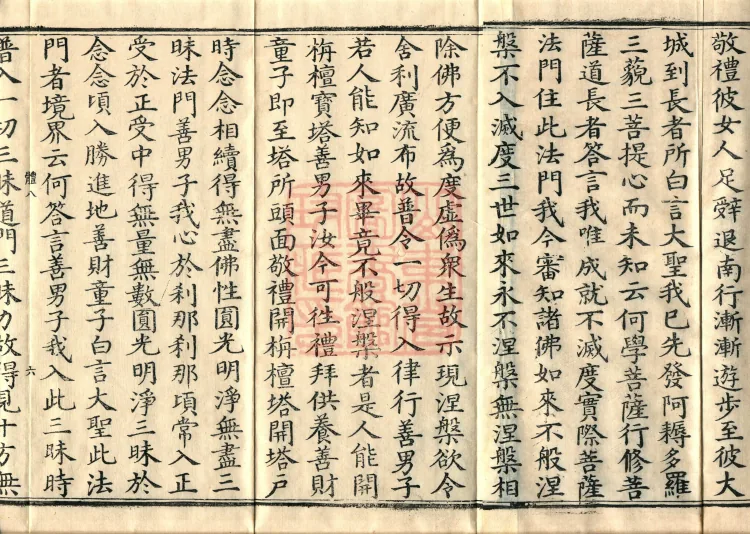 敬禮彼女人足辤退南行漸漸遊步至彼大
城到長者所白言大聖我已先發阿耨多羅
三藐三菩提心而未知云何學菩薩行修菩
薩道長者答言我唯成就不滅度實際菩薩
法門住此法門我今審知諸佛如來不般涅
槃不入滅度三世如來永不涅槃無涅槃相
除佛方便為度虛偽衆生故示現涅槃欲令
舍利廣流布故普令一切得入律行善男子
若人能知如來畢竟不般涅槃者是人能開
栴檀寶塔善男子汝今可往禮拜供養善財
童子即至塔所頭面敬禮開栴檀塔開塔户
時念念相續得無盡佛性圓光明淨無盡三
昧法門善男子我心於剎那剎那頃常入正
受於正受中得無量無數圓光明淨三昧於
念念頃入勝進地善財童子白言大聖此法
門者境界云何答言善男子我入此三昧時
體八
六
普入一切三昧道門三昧力故得見十方無